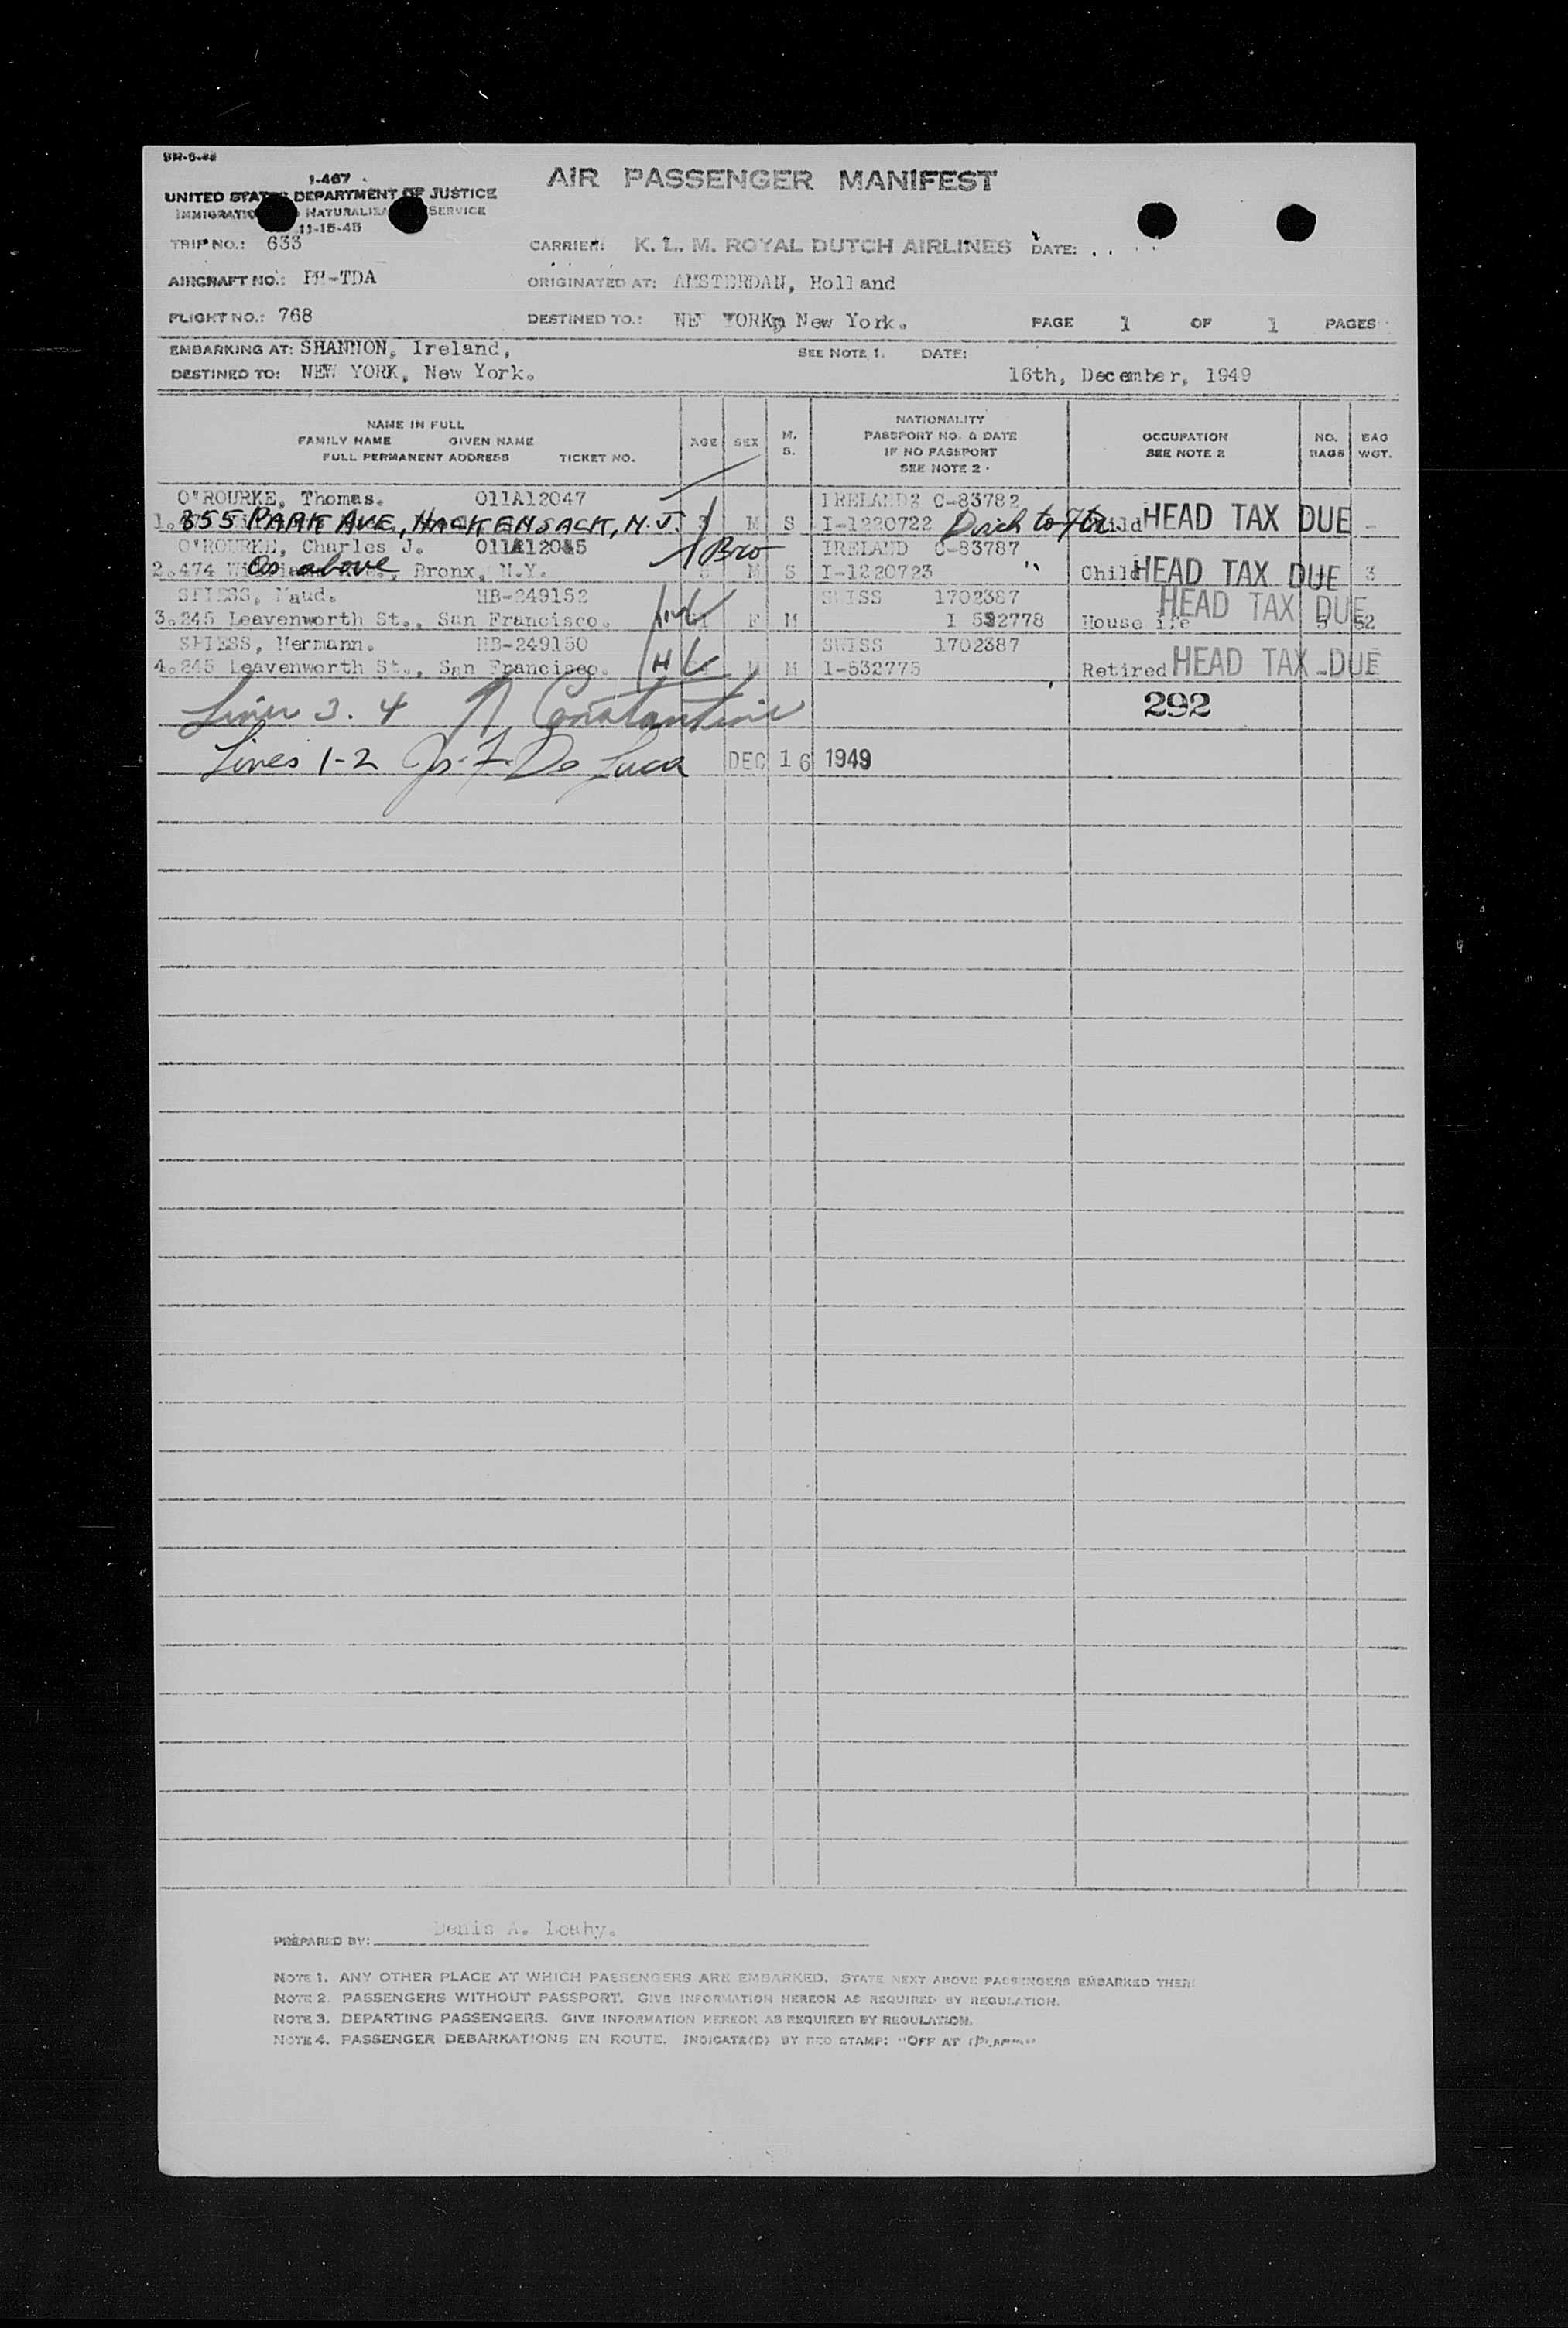 I-467
AIR PASSENGER MANIFEST
UNITED STATES DEPARTMENT OF JUSTICE
IMMIGRATION NATURALIZA SERVICE
11-15-45
TRIP NO.: 633 CARRIER: K. L. M. ROYAL DUTCH AIRLINES DATE:
AIRCRAFT NO.: PH-TDA ORIGINATED AT: AMSTERDAM, Holland
FLIGHT NO.: 768 DESTINED TO.: NEW YORK, New York. PAGE 1 OF 1 PAGES
EMBARKING AT: SHANNON, Ireland, SEE NOTE 1. DATE:
DESTINED TO: NEW YORK, New York. 16th, December, 1949
NAME IN FULL
FAMILY NAME GIVEN NAME
FULL PERMANENT ADDRESS TICKET NO.
AGE SEX M. S.
NATIONALITY
PASSPORT NO. & DATE
IF NO PASSPORT
SEE NOTE 2
OCCUPATION
SEE NOTE 2
NO. BAGS
BAG WGT.
O'ROURKE, Thomas. 011A12047 IRELAND C-83782
1. 355 PARK AVE, HACKENSACK, N.J. M S I-1220722 Child HEAD TAX DUE -
O'ROURKE, Charles J. 011A12045 Bro IRELAND C-83787
2. 474 as above Bronx, N.Y. M S I-1220723 " Child HEAD TAX DUE 3
SPIESS, Maud. HB-249152 SWISS 1702387 HEAD TAX DUE
3. 245 Leavenworth St., San Francisco. W F M I 532778 Housewife 52
SPIESS, Hermann. HB-249150 SWISS 1702387
4. 245 Leavenworth St., San Francisco. H M M I-532775 Retired HEAD TAX DUE
Lines 3. 4 Constantine 292
Lines 1-2 De Luca DEC 16 1949
PREPARED BY: Denis A. Leahy.
NOTE 1. ANY OTHER PLACE AT WHICH PASSENGERS ARE EMBARKED. STATE NEXT ABOVE PASSENGERS EMBARKED THERE
NOTE 2. PASSENGERS WITHOUT PASSPORT. GIVE INFORMATION HEREON AS REQUIRED BY REGULATION.
NOTE 3. DEPARTING PASSENGERS. GIVE INFORMATION HEREON AS REQUIRED BY REGULATION.
NOTE 4. PASSENGER DEBARKATIONS EN ROUTE. INDICATE(D) BY RED STAMP: "OFF AT (PLACE)"